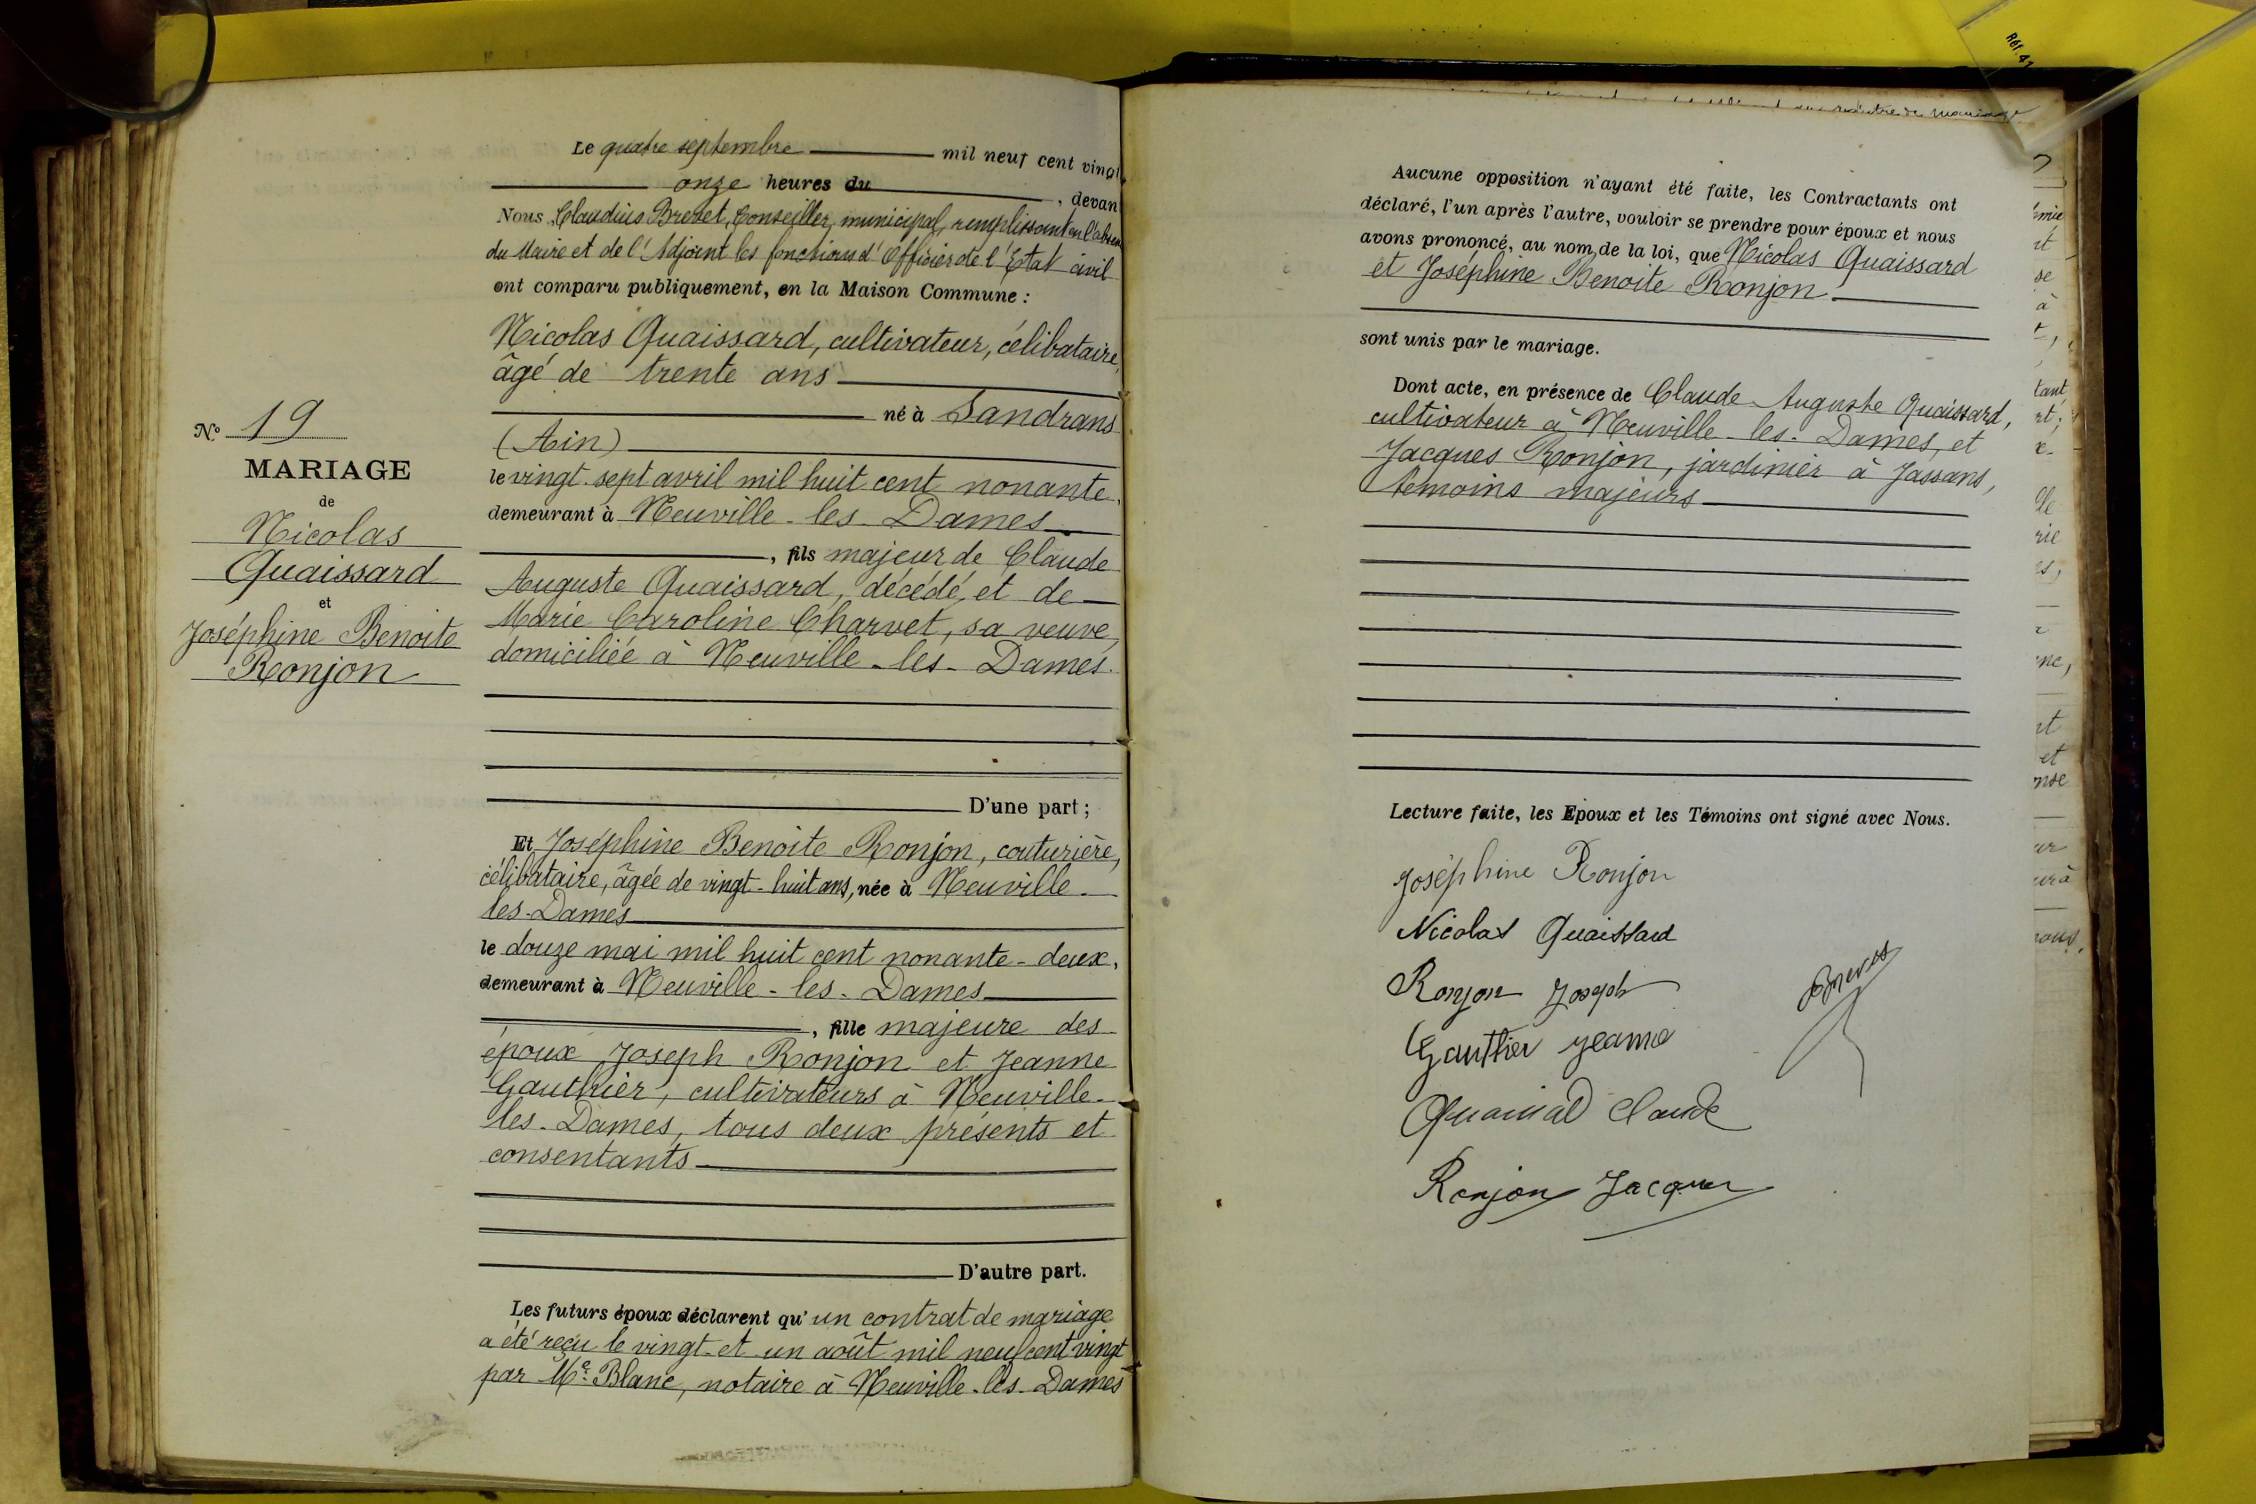 N° 19
MARIAGE
de
Nicolas
Quaissard
et
Joséphine Benoite
Ronjon
Le quatre septembre mil neuf cent vingt
onze heures du , devan
Nous Claudius Brevet, Conseiller municipal, remplissant en l'absen
du Maire et de l'Adjoint les fonctions d'Officier de l'Etat civil
ont comparu publiquement, en la Maison Commune :
Nicolas Quaissard, cultivateur, célibataire,
âgé de trente ans
né à Sandrans
(Ain)
le vingt-sept avril mil huit cent nonante,
demeurant à Neuville-les-Dames
, fils majeur de Claude
Auguste Quaissard, décédé, et de
Marie Caroline Charvet, sa veuve,
domiciliée à Neuville-les-Dames.
D'une part ;
Et Joséphine Benoite Ronjon, couturière,
célibataire, âgée de vingt-huit ans, née à Neuville-
les-Dames
le douze mai mil huit cent nonante-deux,
demeurant à Neuville-les-Dames
, fille majeure des
époux Joseph Ronjon et Jeanne
Gauthier, cultivateurs à Neuville-
les-Dames, tous deux présents et
consentants
D'autre part.
Les futurs époux déclarent qu'un contrat de mariage
a été reçu le vingt-et-un août mil neuf cent vingt
par Me Blanc, notaire à Neuville-les-Dames
Réf. 41
de mariage
Aucune opposition n'ayant été faite, les Contractants ont
déclaré, l'un après l'autre, vouloir se prendre pour époux et nous
avons prononcé, au nom de la loi, que Nicolas Quaissard
et Joséphine Benoite Ronjon
sont unis par le mariage.
Dont acte, en présence de Claude Auguste Quaissard,
cultivateur à Neuville-les-Dames, et
Jacques Ronjon, jardinier à Jassans,
témoins majeurs
Lecture faite, les Epoux et les Témoins ont signé avec Nous.
Joséphine Ronjon
Nicolas Quaissard
Ronjon Joseph
Brevet
Gauthier Jeanne
Quaissard Claude
Ronjon Jacques